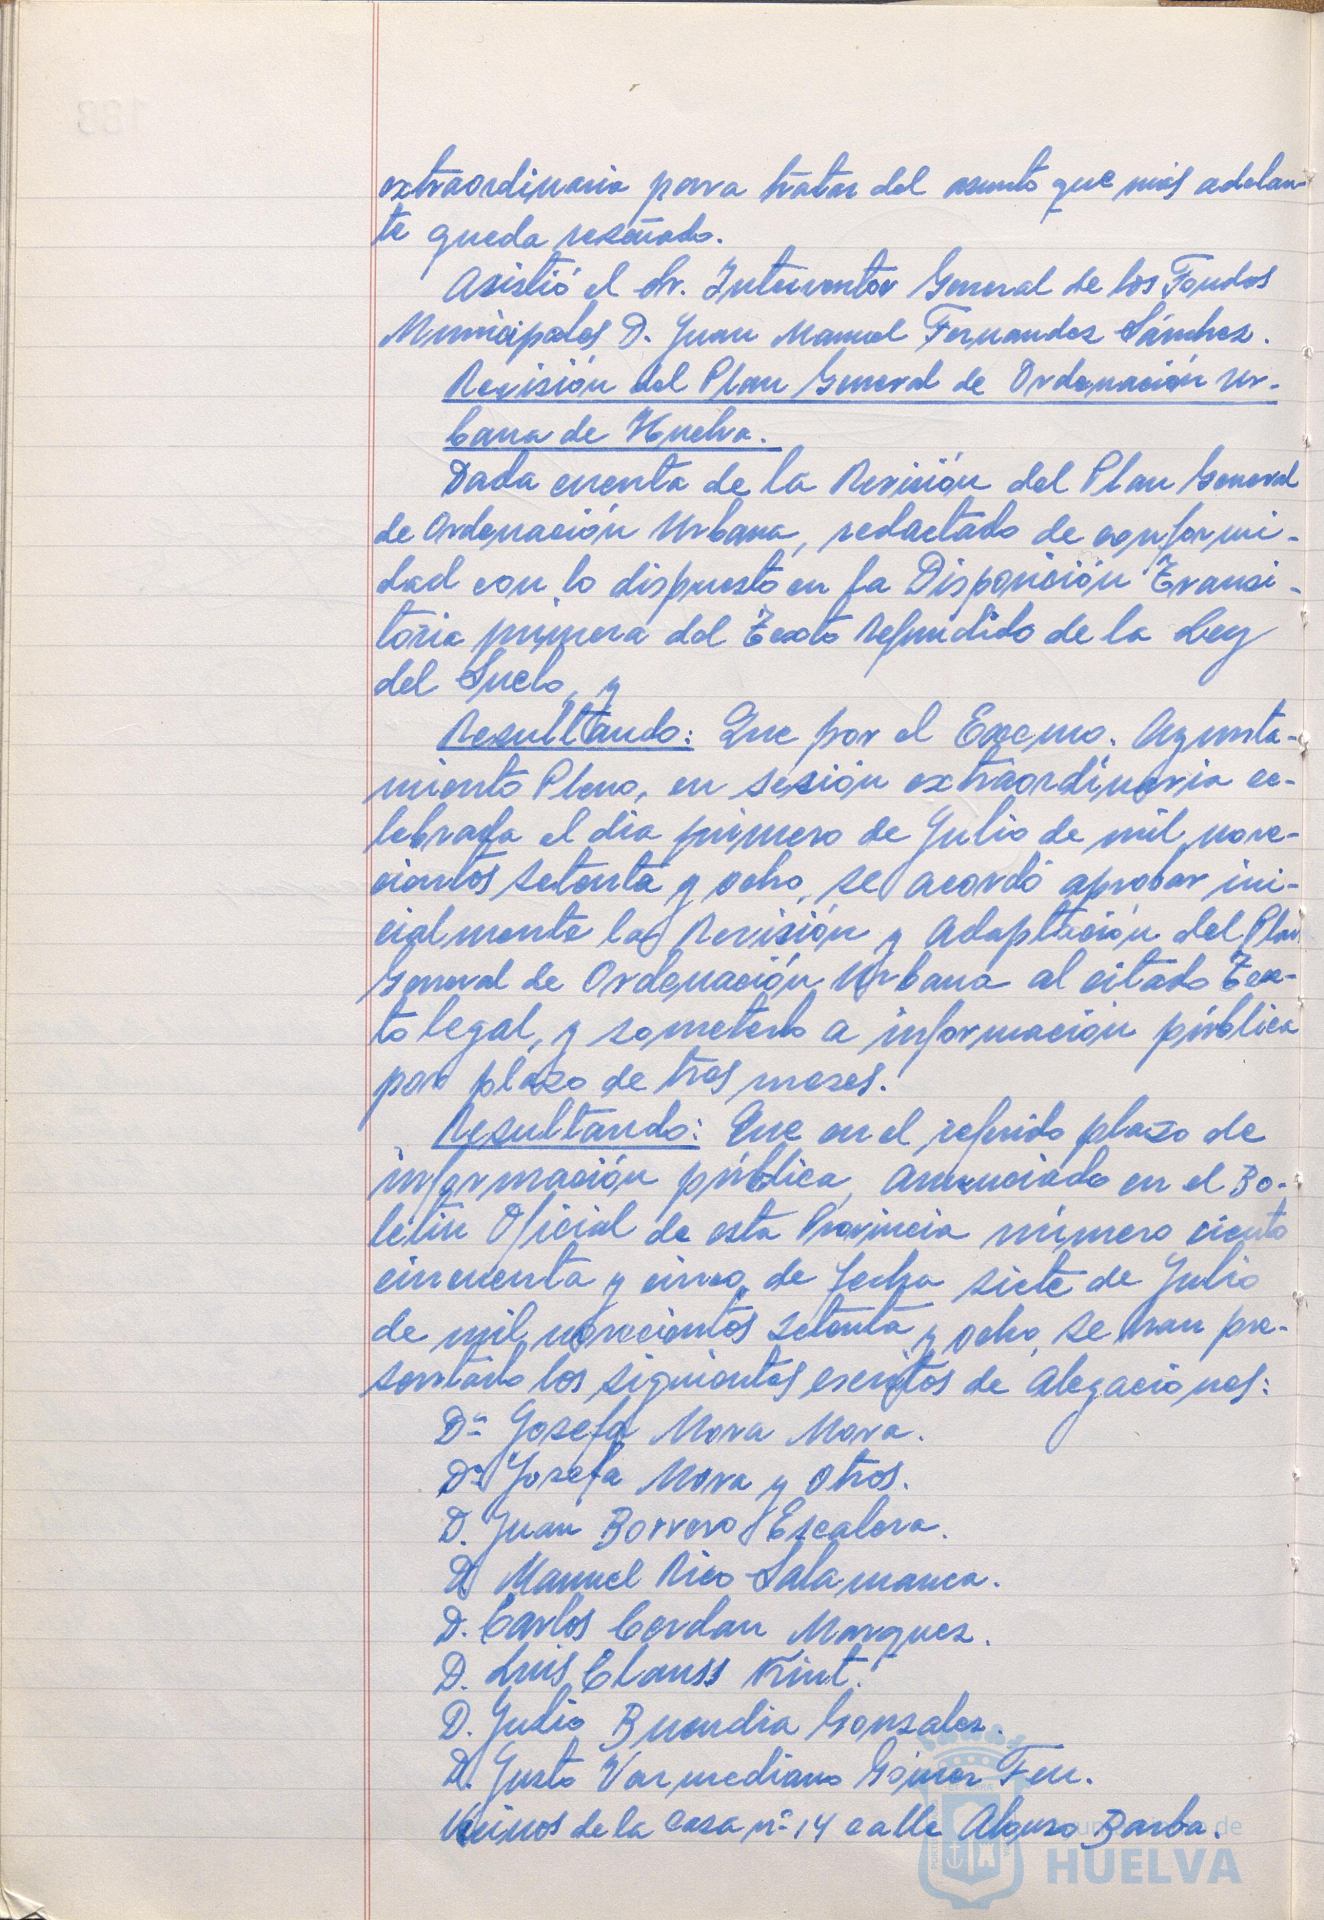 extraordinaria para tratar del asunto que más adelan-
te queda reseñado.
Asistió el Sr. Interventor General de los Fondos
Municipales D. Juan Manuel Fernandez Sánchez.
Revisión del Plan General de Ordenación Ur-
bana de Huelva.
Dada cuenta de la Revisión del Plan General
de Ordenación Urbana, redactado de conformi-
dad con lo dispuesto en la Disposición Transi-
toria primera del Texto Refundido de la Ley
del Suelo, y
Resultando: Que por el Excmo. Ayunta-
miento Pleno, en sesión extraordinaria ce-
lebrada el dia primero de Julio de mil nove-
cientos setenta y ocho, se acordó aprobar ini-
cialmente la Revisión y Adaptación del Plan
General de Ordenación Urbana al citado Tex-
to legal, y someterlo a información pública
por plazo de tres meses.
Resultando: Que en el referido plazo de
información pública, anunciado en el Bo-
letin Oficial de esta Provincia número ciento
cincuenta y cinco, de fecha siete de Julio
de mil novecientos setenta y ocho, se han pre-
sentado los siguientes escritos de alegaciones:
Dª Josefa Mora Mora.
Dª Josefa Mora y otros.
D. Juan Borrero Escalera.
D. Manuel Rico Salamanca.
D. Carlos Cordan Marquez.
D. Luis Clauss Kint.
D. Julio Buendia Gonzalez.
D. Justo Varmediano Gómez Feu.
Vecinos de la casa nº 14 calle Alonso Barba.
HUELVA